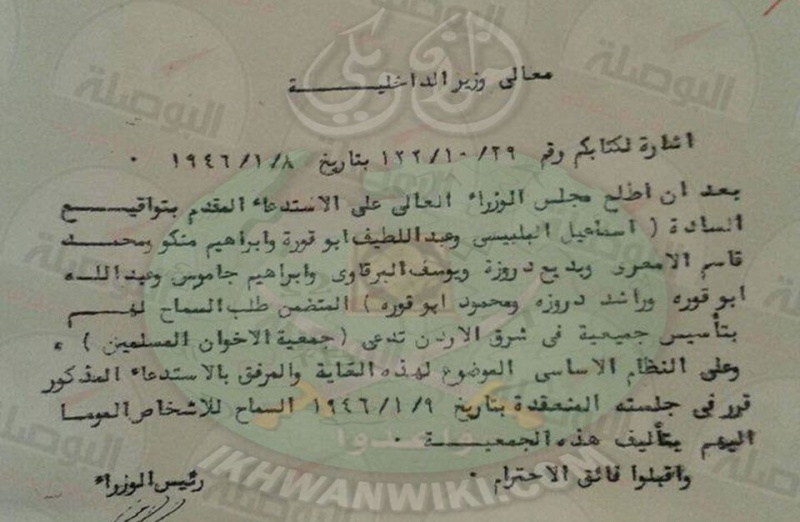 معالى وزير الداخليــــــة
اشارة لكتابكم رقم ١٢٢/١٠/٢٩ بتاريخ ١٩٤٦/١/٨ ٠
بعد ان اطلع مجلس الوزراء العالى على الاستدعاء المقدم بتواقيــع
السادة ( اسماعيل البلبيسى وعبد اللطيف ابو قورة وابراهيم منكو ومحمــد
قاسم الامعرى وبديع دروزة ويوسف البرقاوى وابراهيم جاموس وعبد اللــه
ابو قوره وراشد دروزه ومحمود ابو قوره ) المتضمن طلب السماح لهــم
بتأسيس جمعيية فى شرق الاردن تدعى ( جمعية الاخوان المسلمين ) ،
وعلى النظام الاساسى الموضوع لهذه الغاية والمرفق بالاستدعاء المذكور
قرر فى جلسته المنعقدة بتاريخ ١٩٤٦/١/٩ السماح للاشخاص المومـا
اليهم بتأليف هذه الجمعيـــة ٠
واقبلوا فائق الاحترام ٠
رئيس الوزراء
البوصلة
IKHWANWIKI.COM
واعدوا